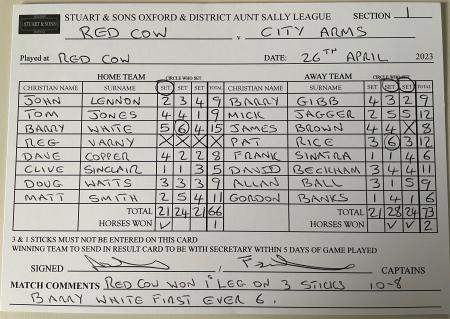 STUART & SONS OXFORD & DISTRICT AUNT SALLY LEAGUE SECTION 1
STUART & SONS
RED COW v CITY ARMS
Played at RED COW DATE: 26TH APRIL 2023
HOME TEAM CIRCLE WHO SET AWAY TEAM CIRCLE WHO SET
CHRISTIAN NAME SURNAME SET SET SET TOTAL CHRISTIAN NAME SURNAME SET SET SET TOTAL
JOHN LENNON 2 3 4 9 BARRY GIBB 4 3 2 9
TOM JONES 4 4 1 9 MICK JAGGER 2 5 5 12
BARRY WHITE 5 6 4 15 JAMES BROWN 4 4 X 8
REG VARNY X X X X PAT RICE 3 6 3 12
DAVE COPPER 4 2 2 8 FRANK SINATRA 1 1 4 6
CLIVE SINCLAIR 1 1 3 5 DAVID BECKHAM 3 4 4 11
DOUG WATTS 3 3 3 9 ALLAN BALL 3 1 5 9
MATT SMITH 2 5 4 11 GORDON BANKS 1 4 1 6
TOTAL 21 24 21 66 TOTAL 21 28 24 73
HORSES WON ✓ 1 HORSES WON ✓ ✓ 2
3 & 1 STICKS MUST NOT BE ENTERED ON THIS CARD
WINNING TEAM TO SEND IN RESULT CARD TO BE WITH SECRETARY WITHIN 5 DAYS OF GAME PLAYED
SIGNED / CAPTAINS
MATCH COMMENTS RED COW WON 1st LEG ON 3 STICKS 10-8
BARRY WHITE FIRST EVER 6.